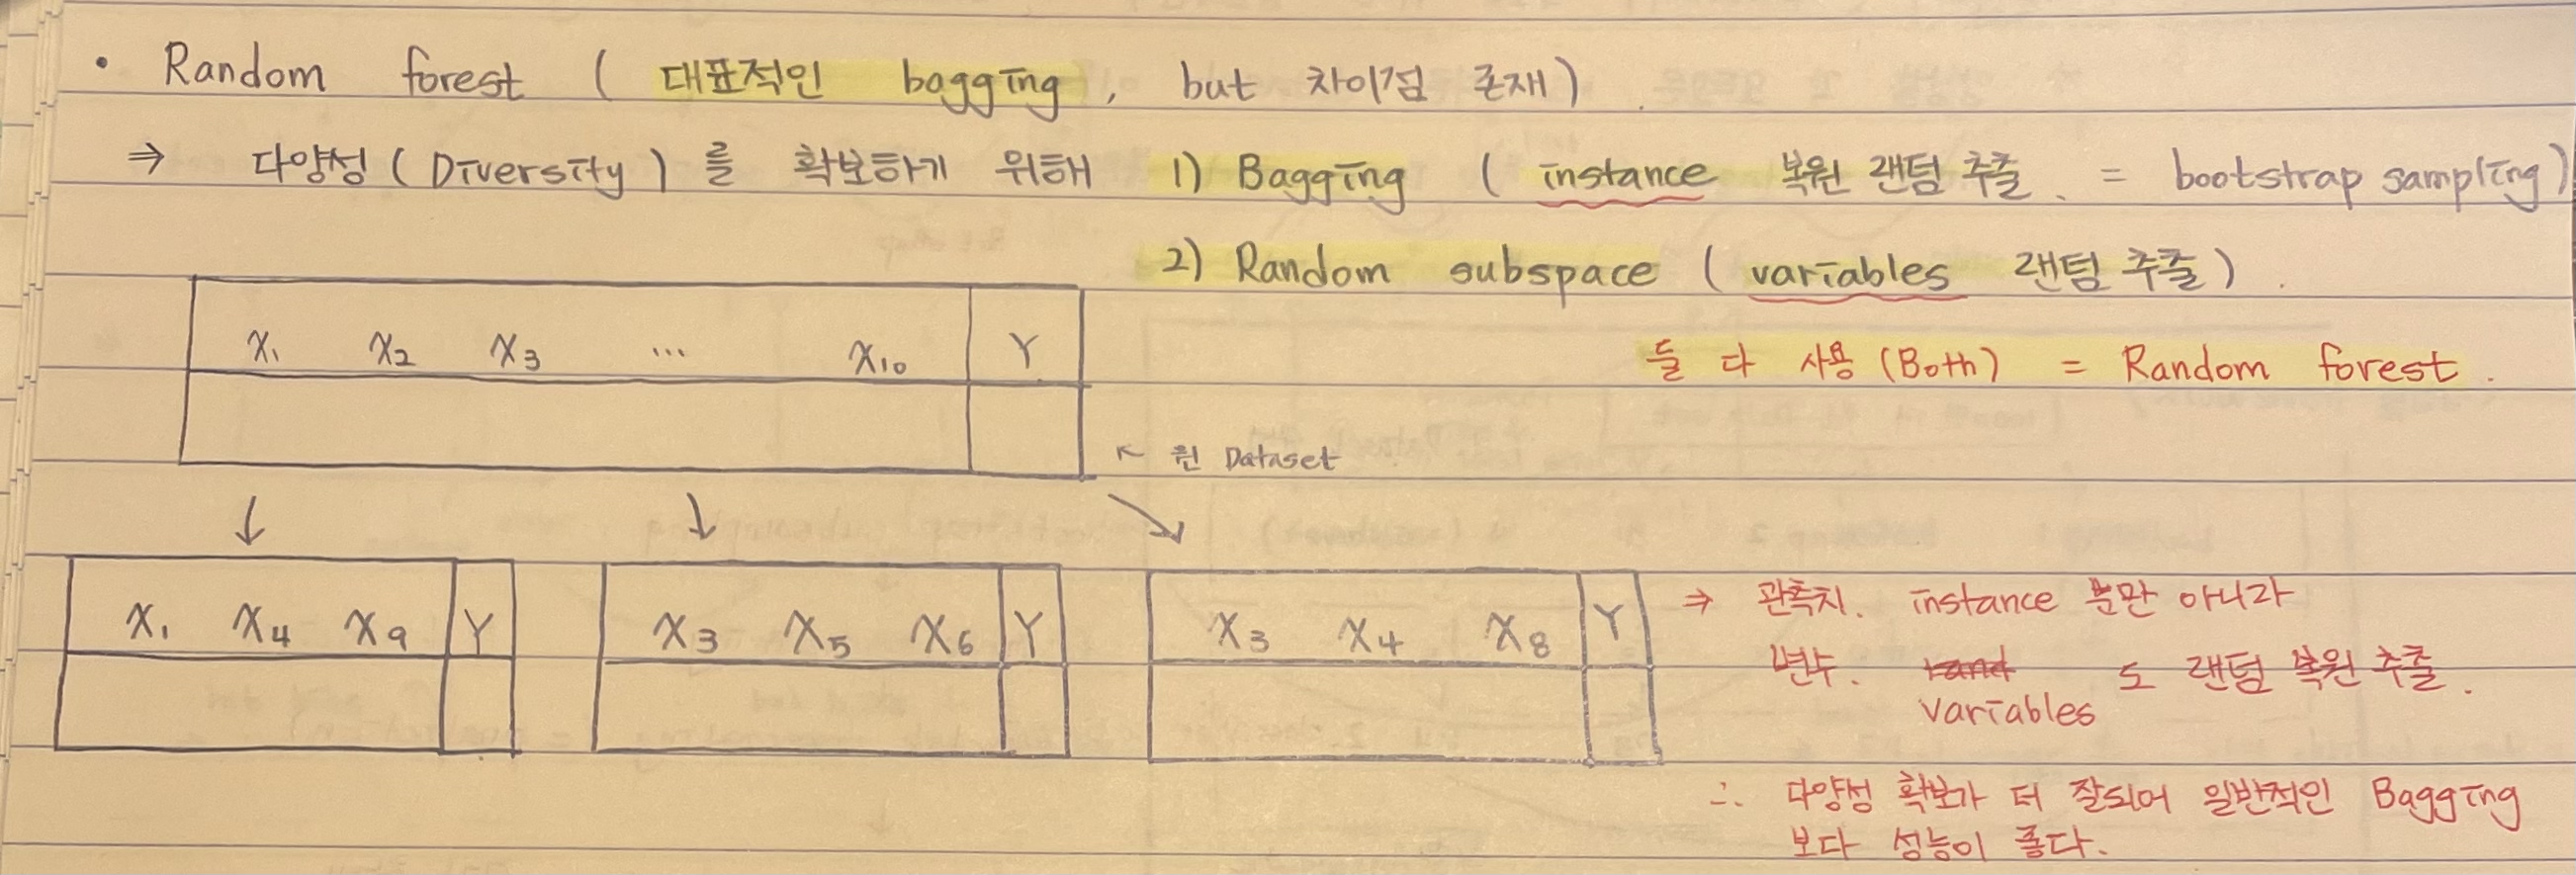 • Random forest ( 대표적인 bagging, but 차이점 존재) .
⇒ 다양성 (Diversity) 를 확보하기 위해 1) Bagging ( instance 복원 랜덤 추출. = bootstrap sampling)
2) Random subspace ( variables 랜덤 추출) .
X₁ X₂ X₃ ... X₁₀ Y
둘 다 사용 (Both) = Random forest .
↖ 원 Dataset
X₁ X₄ X₉ Y
X₃ X₅ X₆ Y
X₃ X₄ X₈ Y
⇒ 관측치. instance 뿐만 아니라
변수. variables 도 랜덤 복원 추출.
∴ 다양성 확보가 더 잘되어 일반적인 Bagging
보다 성능이 좋다.